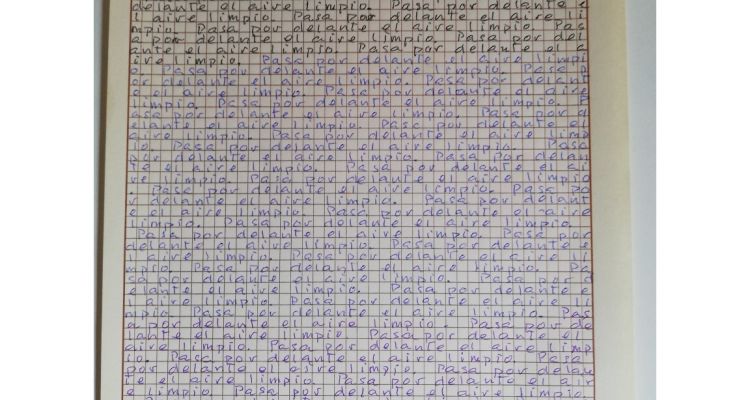 delante el aire limpio. Pasa por delante e
l aire limpio. Pasa por delante el aire li
mpio. Pasa por delante el aire limpio. Pas
a por delante el aire limpio. Pasa por del
ante el aire limpio. Pasa por delante el a
ire limpio. Pasa por delante el aire limpi
o. Pasa por delante el aire limpio. Pasa p
or delante el aire limpio. Pasa por delant
e el aire limpio. Pasa por delante el aire
limpio. Pasa por delante el aire limpio. P
asa por delante el aire limpio. Pasa por d
elante el aire limpio. Pasa por delante el
aire limpio. Pasa por delante el aire limp
io. Pasa por delante el aire limpio. Pasa
por delante el aire limpio. Pasa por delan
te el aire limpio. Pasa por delante el ai
re limpio. Pasa por delante el aire limpio
. Pasa por delante el aire limpio. Pasa po
r delante el aire limpio. Pasa por delant
e el aire limpio. Pasa por delante el aire
limpio. Pasa por delante el aire limpio.
Pasa por delante el aire limpio. Pasa por
delante el aire limpio. Pasa por delante e
l aire limpio. Pasa por delante el aire li
mpio. Pasa por delante el aire limpio. Pa
sa por delante el aire limpio. Pasa por d
elante el aire limpio. Pasa por delante e
l aire limpio. Pasa por delante el aire li
mpio. Pasa por delante el aire limpio. Pas
a por delante el aire limpio. Pasa por de
lante el aire limpio. Pasa por delante el
aire limpio. Pasa por delante el aire limp
io. Pasa por delante el aire limpio. Pasa
por delante el aire limpio. Pasa por delan
te el aire limpio. Pasa por delante el air
e limpio. Pasa por delante el aire limpio.